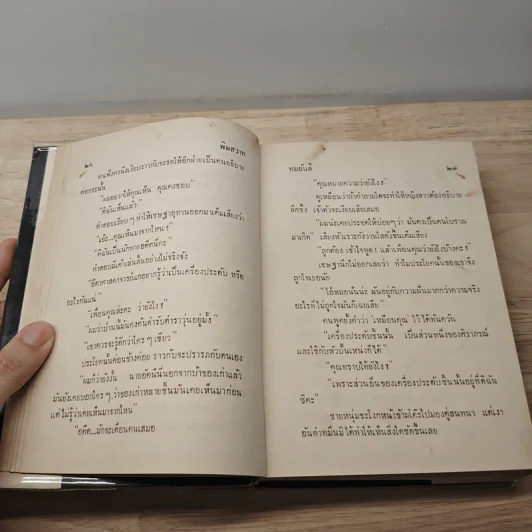 ๒๖
พิษสวาท
คนฟังคงนิ่งเงียบราวกับจะรอให้อีกฝ่ายเป็นคนอธิบาย
ต่อกระนั้น
"ผมอยากให้คุณเห็น คุณคงชอบ"
"ดิฉันเห็นแล้ว"
คำตอบเรียบๆ ทำให้เชษฐาอุทานออกมาเต็มเสียงว่า
"เอ๊ะ...คุณเห็นมาจากไหน!"
"ดิฉันเป็นนักทายอดีตนี่คะ"
คำตอบมีเค้าเล่นลิ้นอย่างไม่จริงจัง
"อัคาศาสตราจารย์แกอยากรู้ว่าเป็นเครื่องประดับ หรือ
อะไรกันแน่"
"เพื่อนคุณล่ะคะ ว่ายังไง!"
"ผมว่าบ้านนี้มันคงต้นตำรับตำราวุ่นอยู่มั้ง"
"เขาควรจะรู้ดีกว่าใครๆ เชียว"
ประโยคนั้นค่อนข้างค่อย ราวกับจะปรารภกับตนเอง
"ผมก็ว่ายังงั้น นายอัคนีนี่นอกจากบ้าของเก่าแล้ว
มันยังเคยบอกใครๆ ว่าของเก่าหลายชิ้นมันเคยเห็นมาก่อน
แต่ไม่รู้ว่าเคยเห็นมาจากไหน"
"อดีต...มักจะเตือนคนเสมอ
ทมยันตี
๒๗
"คุณหมายความว่ายังไง!"
ดูเหมือนว่าถ้าคำถามใดจะทำให้หญิงสาวต้องอธิบาย
ลึกซึ้ง เจ้าตัวจะเงียบเสียเสมอ
"ผมน่ะเคยประชดให้บ่อยๆว่า มันคงเป็นคนโบราณ
มาเกิด" เสียงหัวเราะกังวานใสดังขึ้นเต็มเสียง
"ถูกต้อง เข้าใจพูด! แล้วเพื่อนคุณว่ายังไงบ้างคะ!"
เชษฐานึกไม่ออกเลยว่า ทำไมประโยคนั้นของเขาจึง
ถูกใจเธอนัก
"ไอ้หมอนั่นน่ะ มันอยู่กับความฝันมากกว่าความจริง
อะไรที่ไม่ถูกใจมันก็เฉยเสีย"
คนพูดยั้งคำว่า 'เหมือนคุณ' ไว้ได้ทันควัน
"เครื่องประดับชิ้นนั้น เป็นส่วนหนึ่งของศิราภรณ์
และใช้กับหัวปั้นเหน่งก็ได้"
"คุณทราบได้ยังไง!"
"เพราะส่วนอื่นของเครื่องประดับชิ้นนั้นอยู่ที่ดิฉัน
ซิคะ"
ชายหนุ่มชะโงกหน้าข้ามโต๊ะไปมองคู่สนทนา แต่เงา
อันดำทมึนมิได้ทำให้เห็นสิ่งใดชัดขึ้นเลย